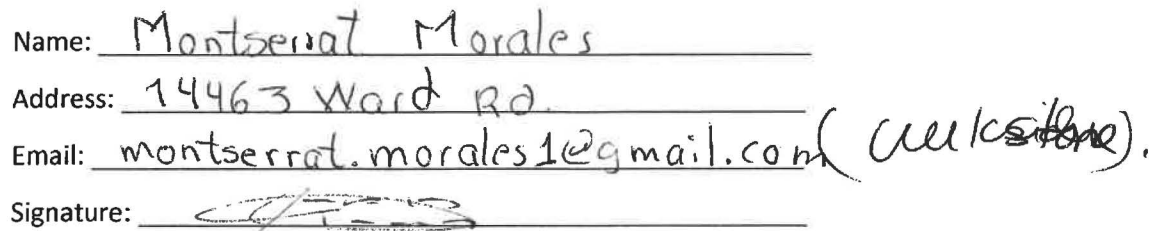 Name: Montserrat Morales
Address: 14463 Ward Rd.
Email: montserrat.morales1@gmail.com
Signature: